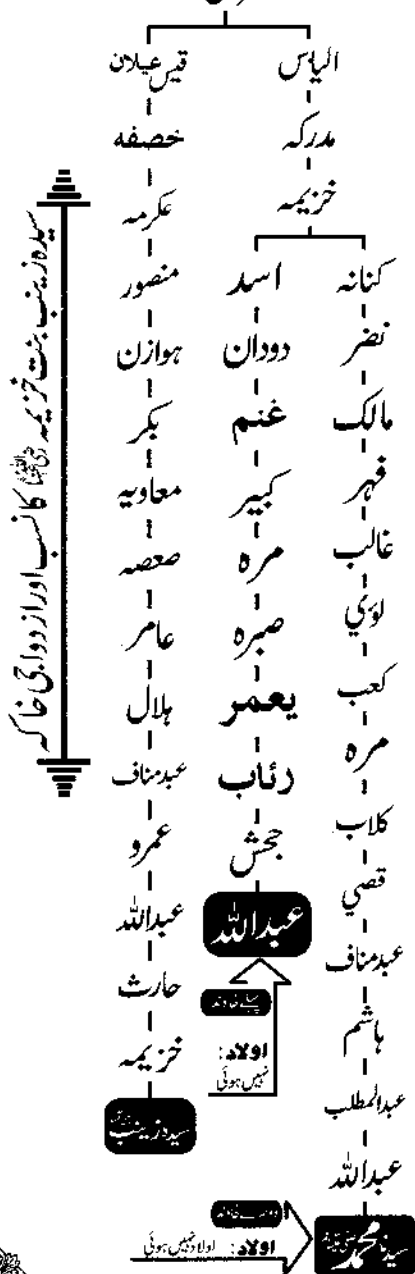 الیاس
مدرکہ
خزیمہ
کنانہ
نضر
مالک
فہر
غالب
لوَي
کعب
مرہ
کلاب
قصي
عبدمناف
ہاشم
عبدالمطلب
عبداللہ
سیدنا محمد ﷺ
اسد
دودان
غنم
کبیر
مرہ
صبرہ
یعمر
رئاب
جحش
عبداللہ
پہلے خاوند
اولاد:
نہیں ہوئی
دوسرے خاوند
اولاد: اولاد نہیں ہوئی
قیس عیلان
خصفہ
عکرمہ
منصور
ہوازن
بکر
معاویہ
صعصہ
عامر
ہلال
عبدمناف
عمرو
عبداللہ
حارث
خزیمہ
سیدہ زینب
سیدہ زینب بنت خزیمہ رضی اللہ عنہا کا نسب اور ازدواجی خاکہ